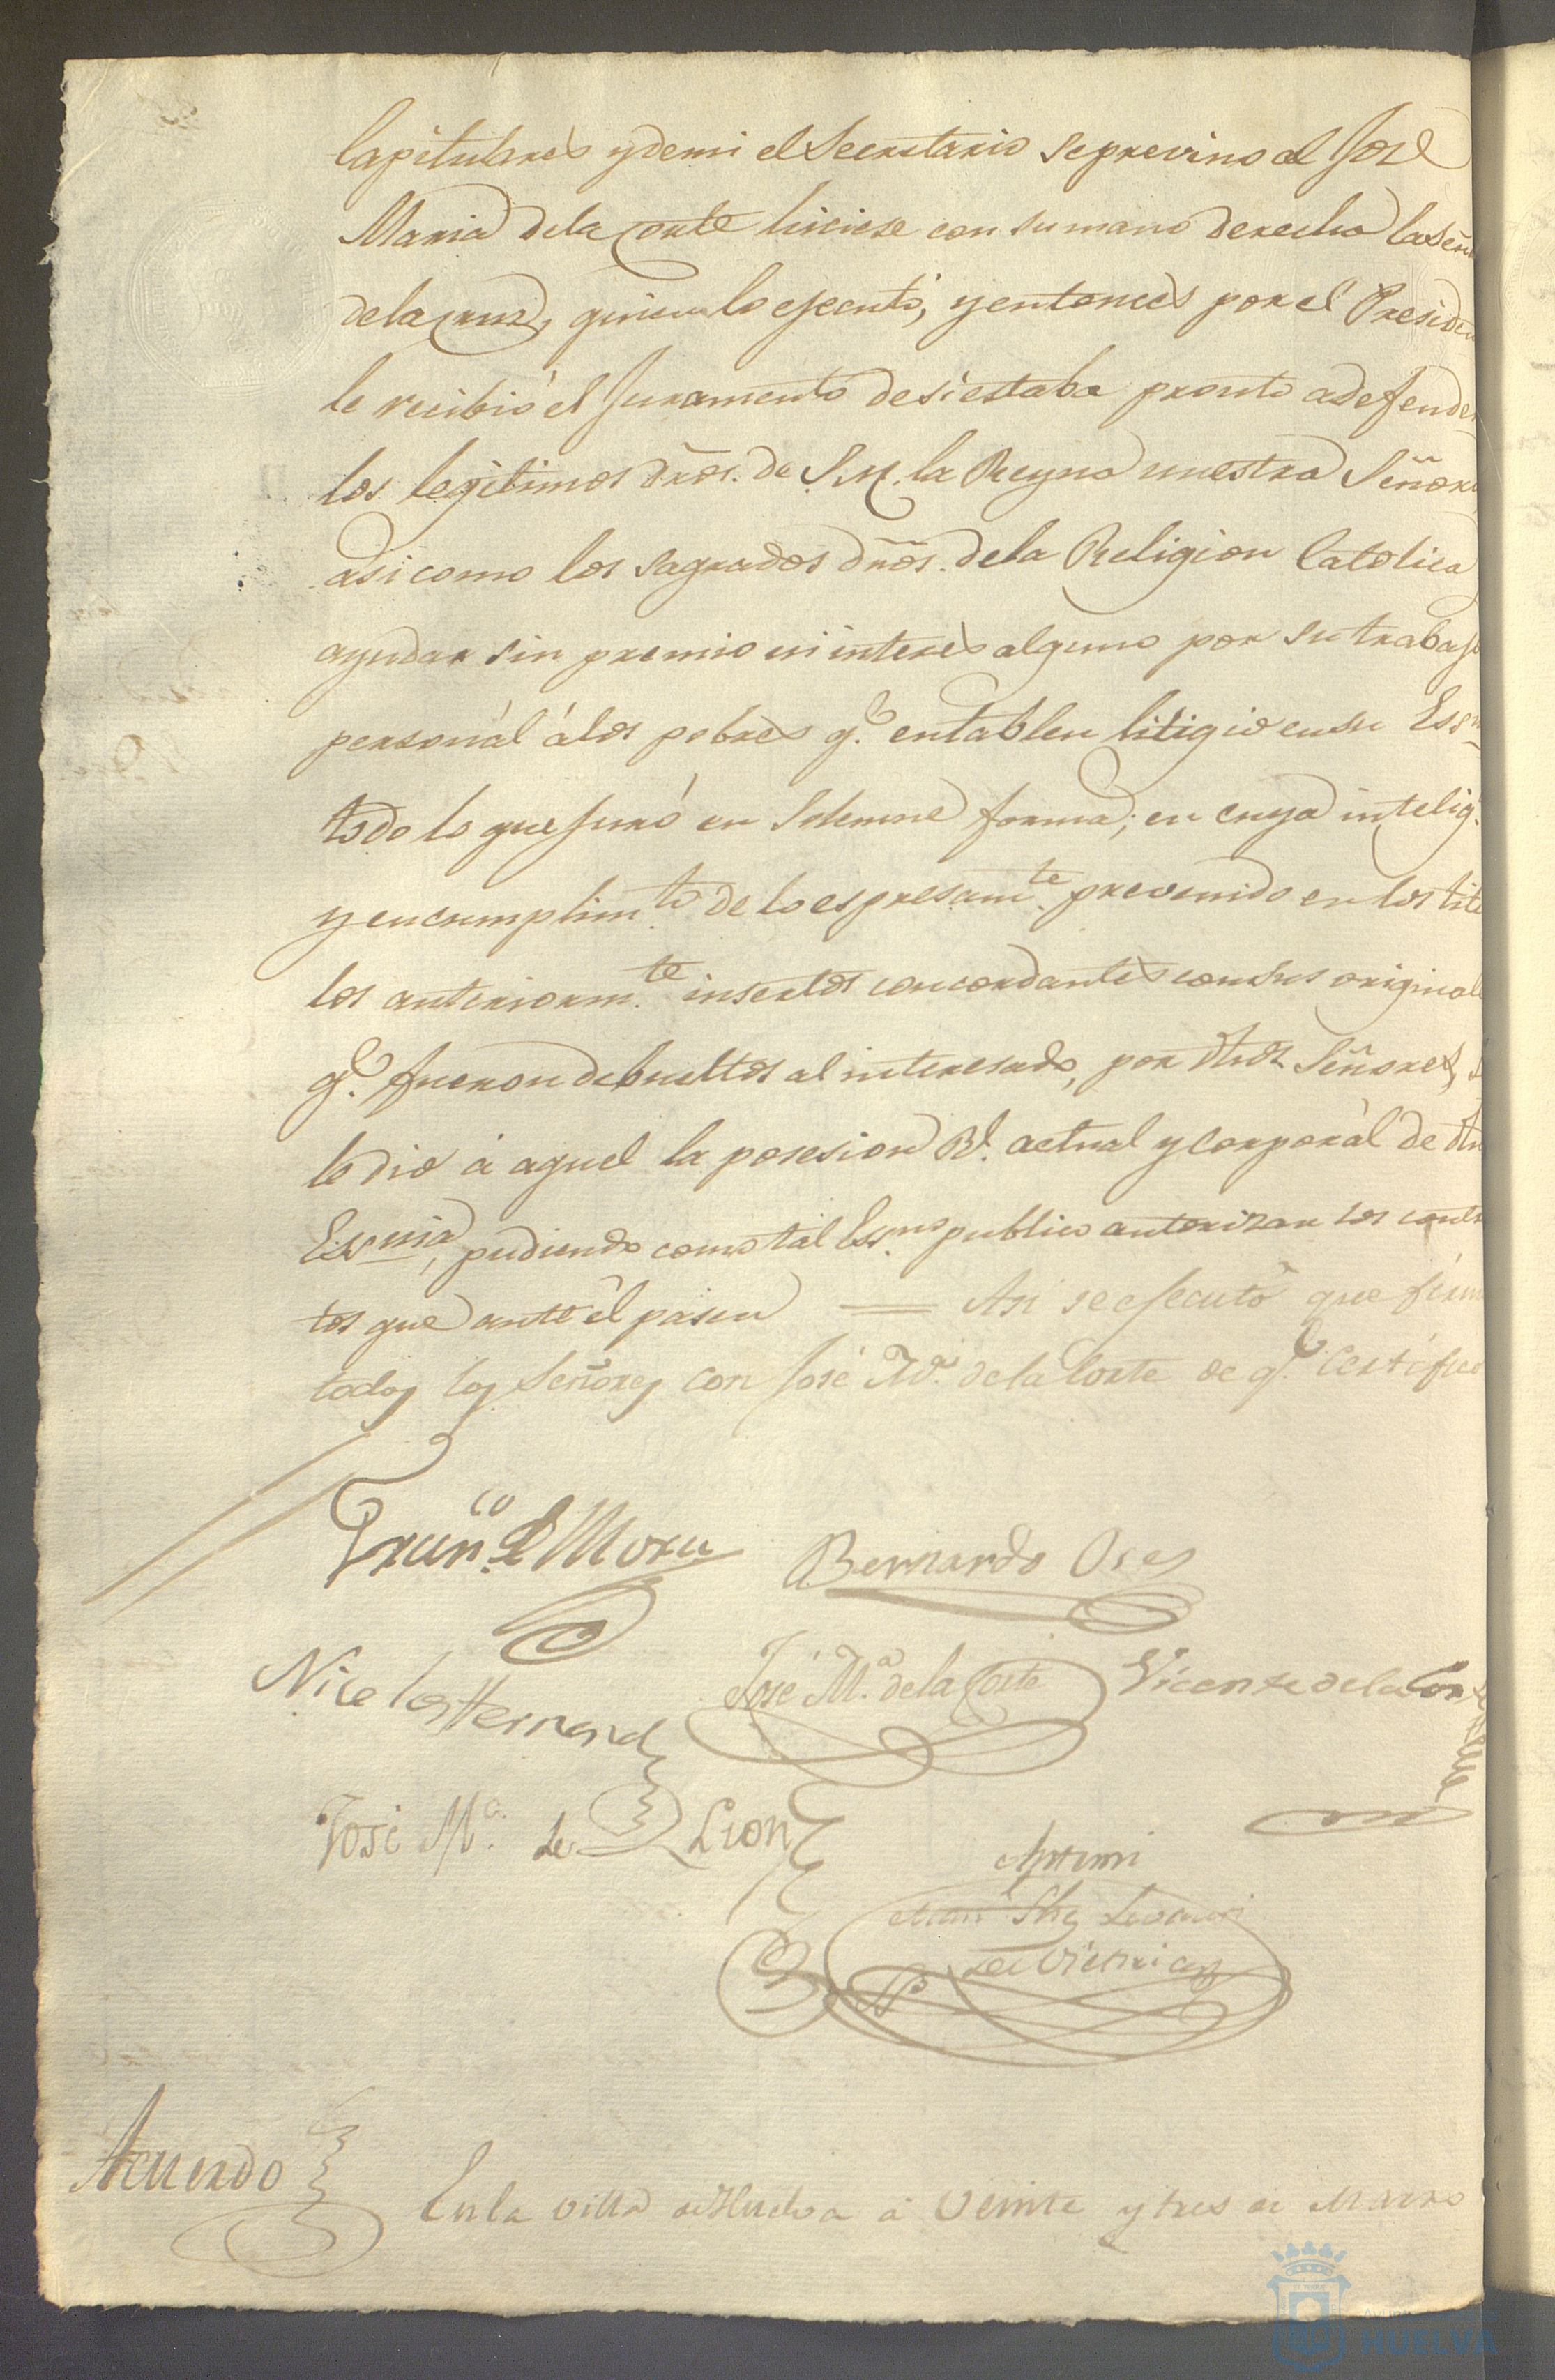 Capitulares y demi el Secretario se previno al José
Maria dela Corte hiciese con su mano derecha la señ
dela cruz, quien lo egecutó, y entonces por el Presiden
le recibió el Juramento de si estaba pronto a defender
los legitimos dr̃os. de S.M. la Reyna nuestra Señora
asi como los sagrados dr̃os. dela Religion Catolica
ayudar sin premio ni interes alguno por su trabajo
personál álos pobres q.e entablen litigio en su Esc
todo lo que juró en Solemne forma; en cuya intelig.
y en cumplim.to de lo espresam.te prevenido en los titu
los anteriorm.te insertos concordantes con sus original
q.e fueron debueltos al interesado, por dhos Señores, s
le dió á aquel la posesion Rl. actual y corporál de dh
Escnia, pudiendo como tal Esc.no publico autorizar los contra
tos que ante él pasen = Asi se ejecutó que firm
todos los Señores con José M.a dela Corte de q.e Certifico
Fran.co de Mora
Bernardo Oses
Nicolas Hernand
José M.a dela Corte
Vicente dela Corte
José M.a de Leon
Ante mi
Acuerdo
En la villa de Huelva á veinte y tres de Marzo
HUELVA